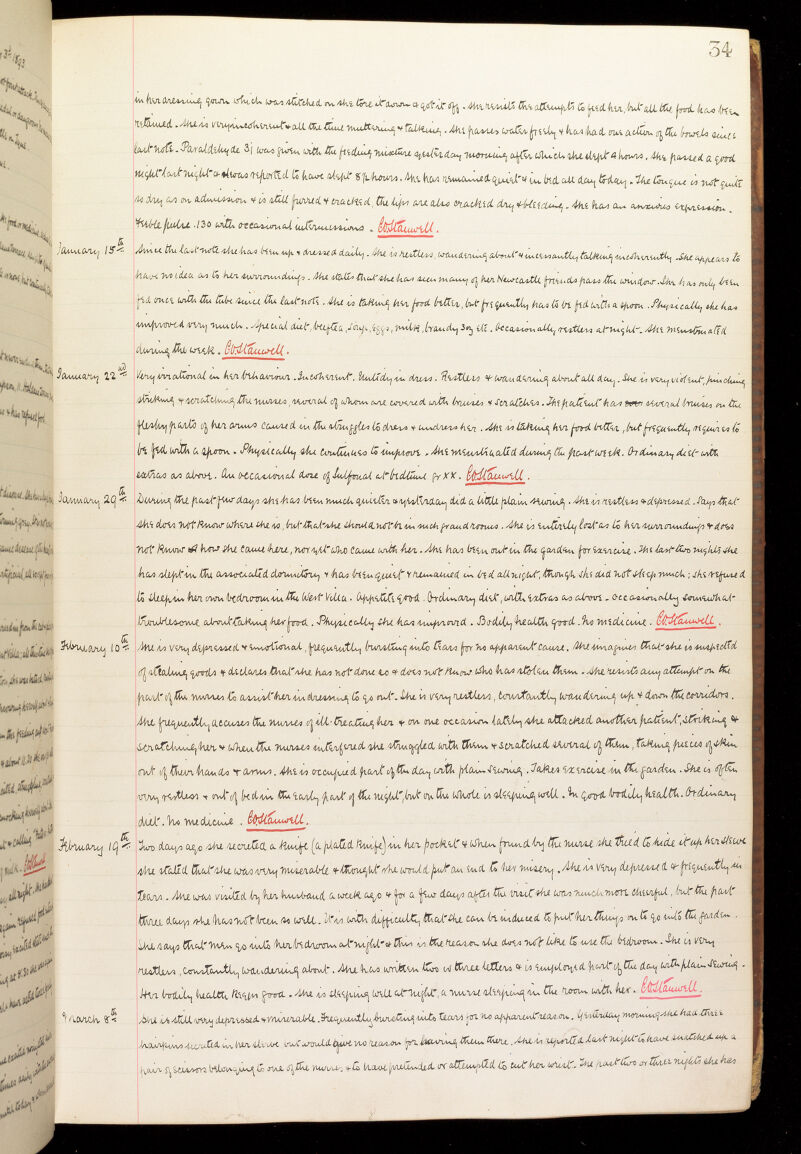 34
in her dressing gown which was stitched on she tore it down & got it off. She resists the attempts to feed her, but all the food has been
retained. She is very incoherent & all the time muttering & talking. She passes water freely & has had one action of the bowels since
last note. Paraldehyde 3i was given with the feeding mixture yesterday morning after which she slept 4 hours. She passed a good
night last night & was reported to have slept 8½ hours. She has remained quiet & in bed all day today. The tongue is not quite
so dry as on admission & is still furred & cracked, the lips are also cracked dry & bleeding. She has an anxious expression.
Feeble pulse. 130 with occasional intermissions. COStanwell.
January 15th Since the last note she has been up & dressed daily. She is restless, wandering about & incessantly talking incoherently. She appears to
have no idea as to her surroundings. She states that she has seen many of her Newcastle friends pass the window. She has only been
fed once with the tube since the last note. She is taking her food better, but frequently has to be fed with a spoon. Physically she has
improved very much. Special diet, beeftea, sago, eggs, milk, brandy etc. Occasionally restless at night. She menstruated
during the week. COStanwell.
January 22nd Very irrational in her behaviour. Incoherent. Untidy in dress. Restless & wandering about all day. She is very violent, pinching
striking & scratching the nurses, several of whom are covered with bruises & scratches. The patient has several bruises on the
fleshy parts of her arms caused in the struggles to dress & undress her. She is taking her food better, but frequently requires to
be fed with a spoon. Physically she continues to improve. She menstruated during the past week. Ordinary diet with
extras as above. An occasional dose of Sulfonal at bedtime gr xx. COStanwell.
January 29th During the past few days she has been much quieter & yesterday did a little plain sewing. She is restless & depressed. Says that
she does not know where she is, but that she should not be in such grand rooms. She is entirely lost as to her surroundings & does
not know how she came here, nor yet who came with her. She has been out in the garden for exercise. The last two nights she
has slept in the associated dormitory & has been quiet & remained in bed all night, though she did not sleep much; she refused
to sleep in her own bedroom in the West Villa. Appetite good. Ordinary diet, with extras as above. Occasionally somewhat
troublesome about taking her food. Physically she has improved. Bodily health good. No medicine. COStanwell.
February 10th She is very depressed & emotional, frequently bursting into tears for no apparent cause. She imagines that she is suspected
of stealing goods & declares that she has not done so & does not know who has stolen them. She resists any attempt on the
part of the nurses to assist her in dressing to go out. She is very restless, constantly wandering up & down the corridors.
She frequently accuses the nurses of ill-treating her & on one occasion lately she attacked another patient, striking &
scratching her & when the nurses interfered she struggled with them & scratched several of them, taking pieces of skin
out of their hands & arms. She is occupied part of the day with plain sewing. Takes exercise in the garden. She is often
very restless & out of bed in the early part of the night, but on the whole is sleeping well. In good bodily health. Ordinary
diet. No medicine. COStanwell.
February 19th Two days ago she secreted a knife (a plated knife) in her pocket & when found by the nurse she tried to hide it up her sleeve
she stated that she was very miserable & thought she would put an end to her misery. She is very depressed & frequently in
tears. She was visited by her husband a week ago & for a few days after the visit she was much more cheerful, but the past
three days she has not been so well. It is with difficulty that she can be induced to put her things on to go into the garden.
She says that men go into her bedroom at night & this is the reason she does not like to use the bedroom. She is very
restless, constantly wandering about. She has written two or three letters & is employed part of the day with plain sewing.
Her bodily health keeps good. She is sleeping well at night, a nurse sleeping in the room with her. COStanwell.
March 8th She is still very depressed & miserable. Frequently bursting into tears for no apparent reason. Yesterday morning she had three
hairpins secreted in her sleeve but would give no reason for having them there. She is reported last night to have snatched up a
pair of scissors belonging to one of the nurses & to have pretended or attempted to cut her wrist. The past two or three nights she has